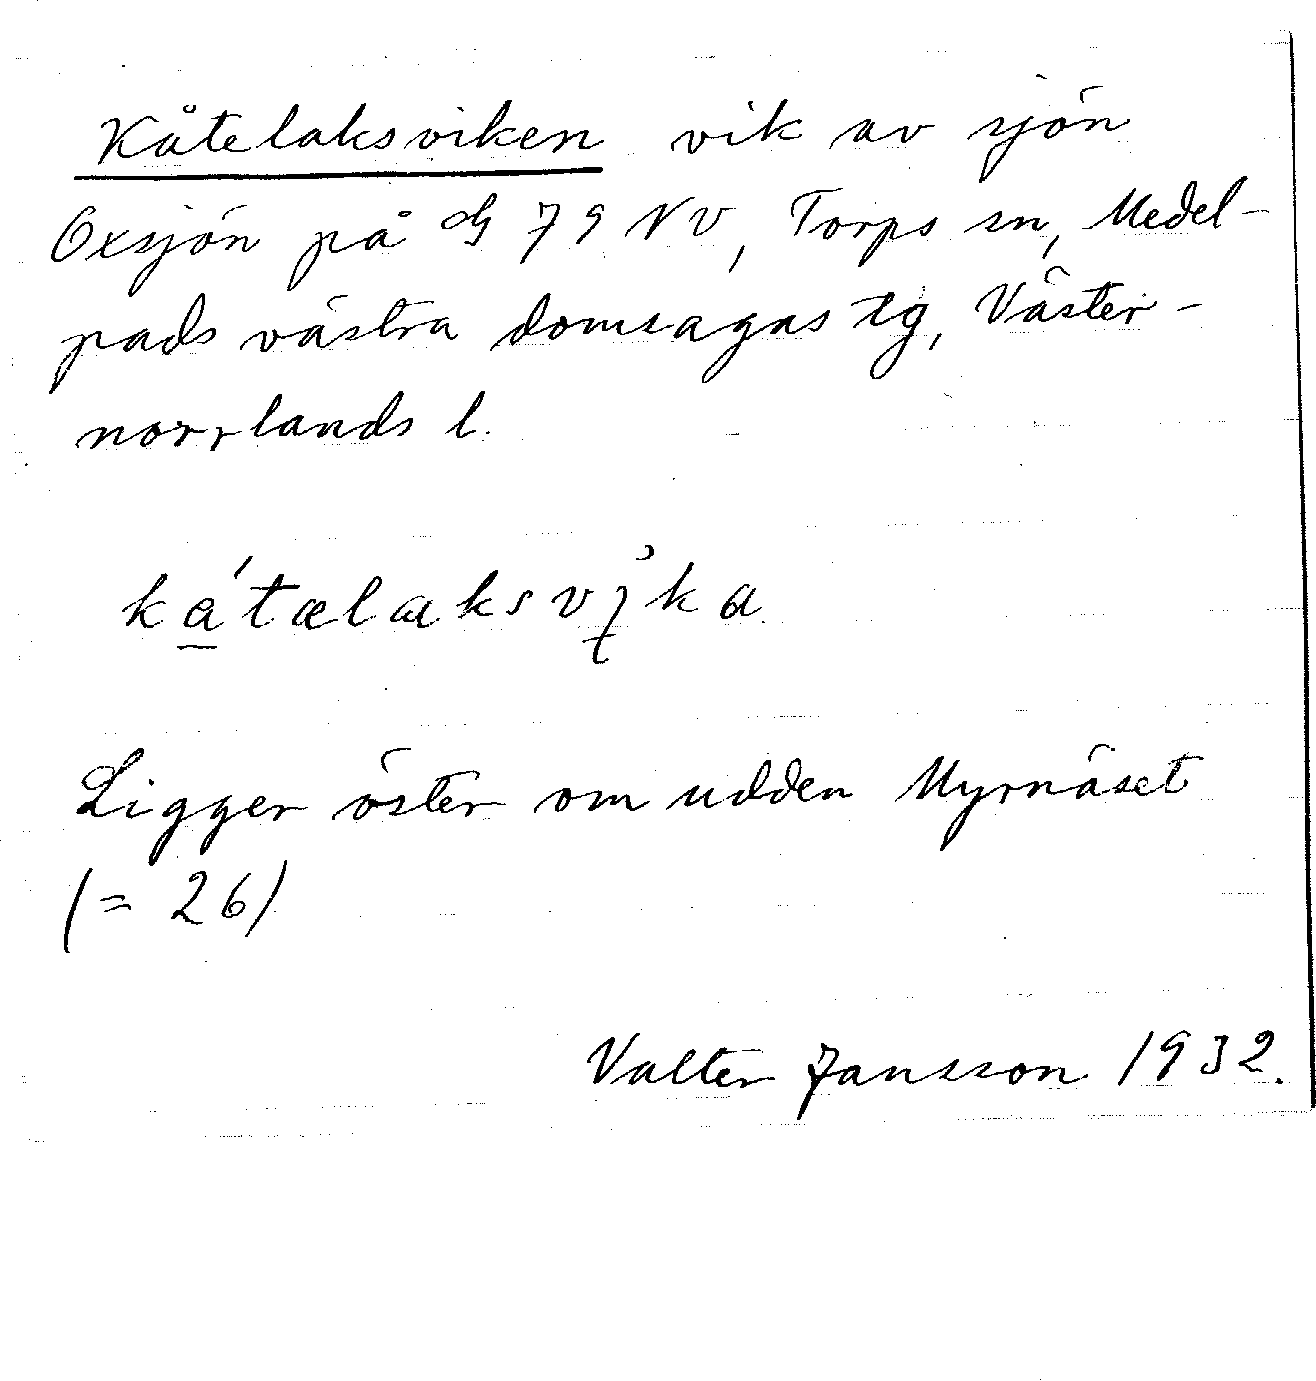 Kåtelaksviken vik av sjön
Oxsjön på G 79 NV, Torps sn, Medel-
pads västra domsagas tg, Väster-
norrlands l.
Ligger öster om udden Myrnäset
(= 26)
Valter Jansson 1932.